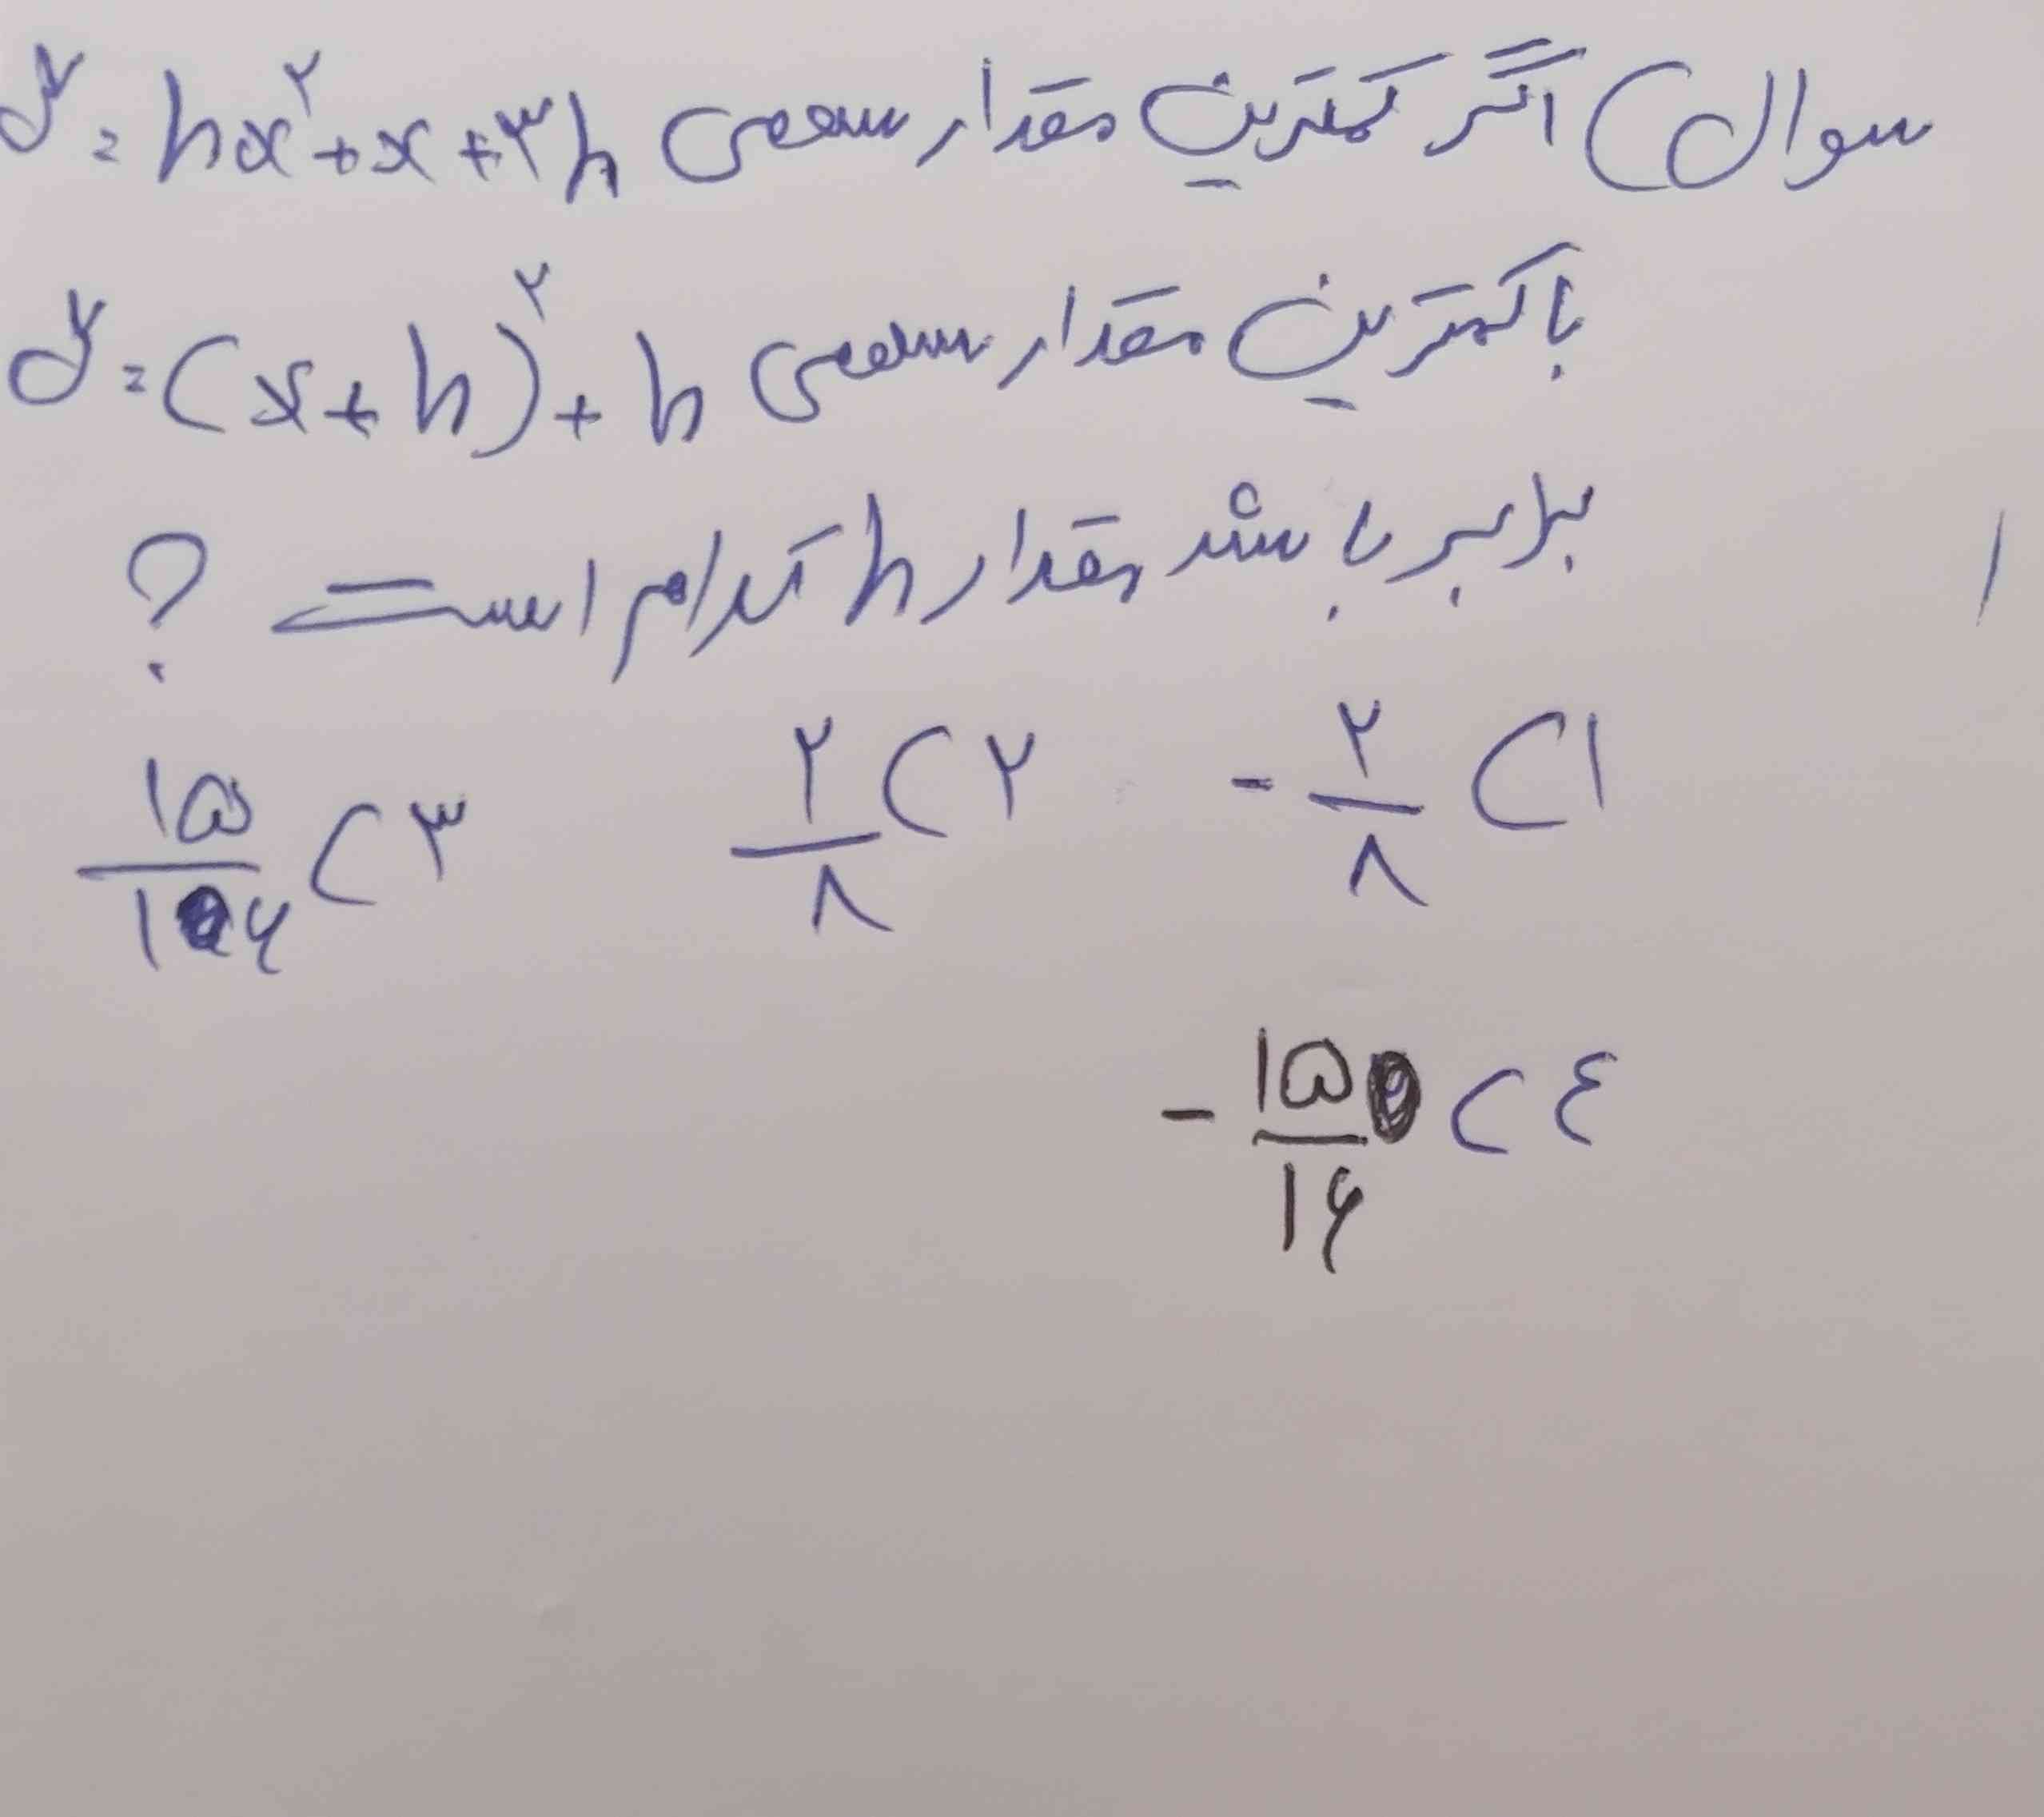 سوال) اگر کمترین مقدار سهمی y = hx² + x + ۳h
با کمترین مقدار سهمی y = (x + h)² + h
برابر باشد مقدار h کدام است ؟
۱) -۲/۸ ۲) ۲/۸ ۳) ۱۵/۱۶
۴) -۱۵/۱۶